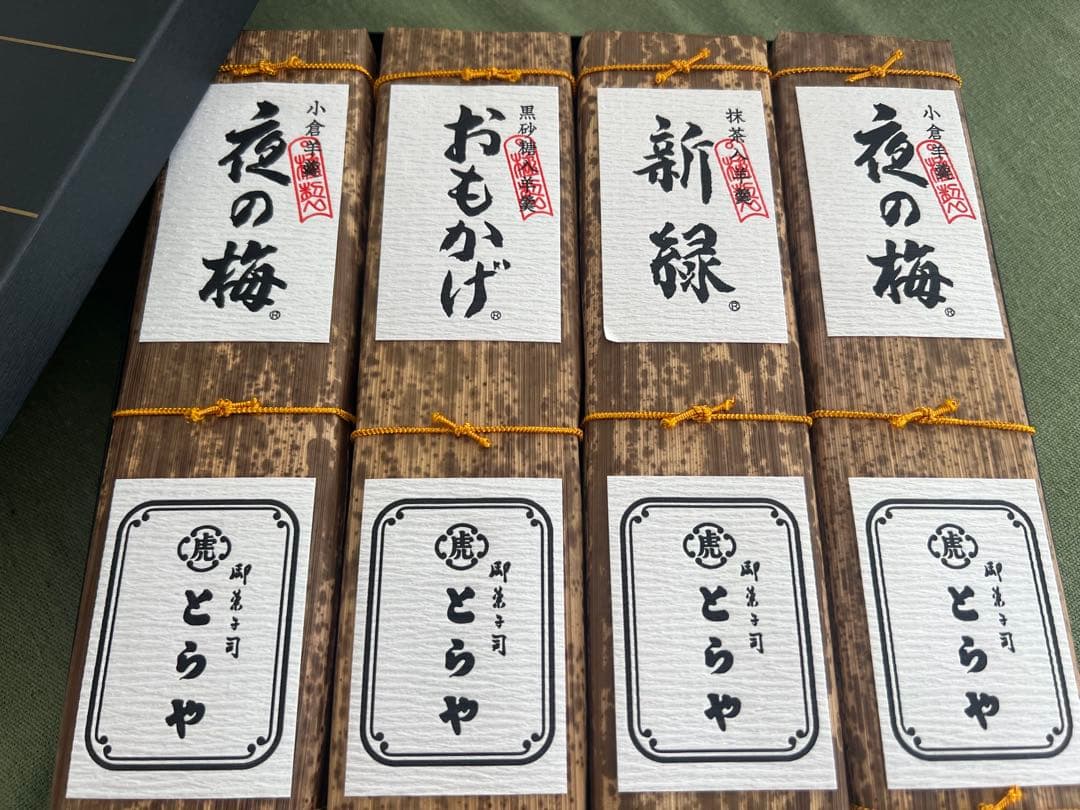 小倉羊羹
夜の梅
®
黒砂糖入羊羹
おもかげ
®
抹茶入羊羹
新緑
®
小倉羊羹
夜の梅
®
虎
御菓子司
とらや
虎
御菓子司
とらや
虎
御菓子司
とらや
虎
御菓子司
とらや